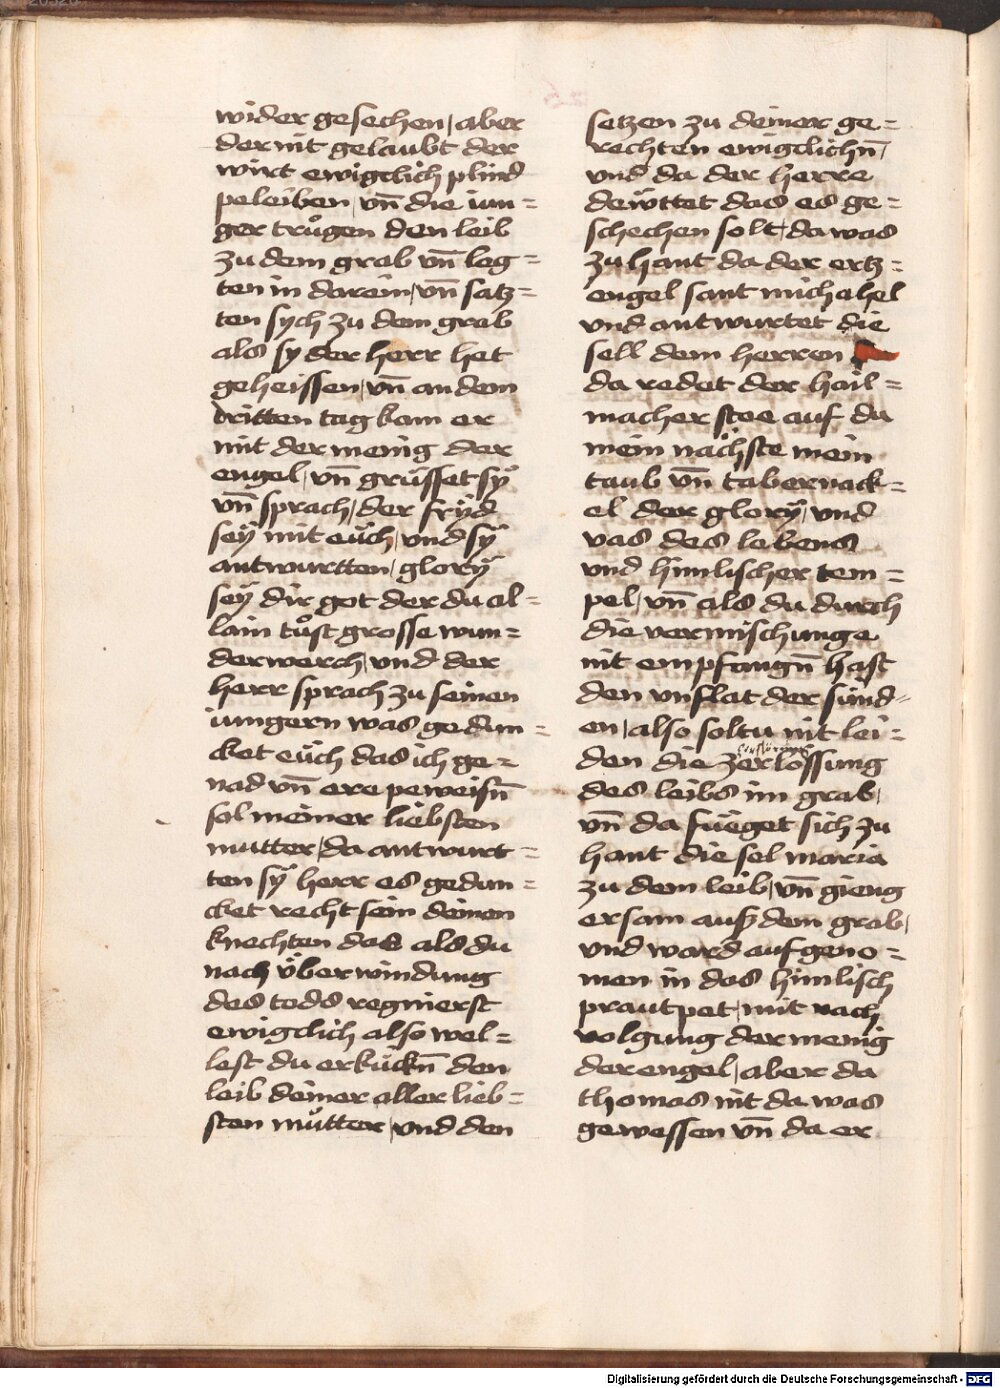 wider gesechen, aber
der nit gelaubt der
wirt ewigclich plind
peleiben, vn̄ die iun=
ger trůgen den leib
zu dem grab vn̄ leg=
ten in darein, vn̄ satz=
ten sych zu dem grab
als sy der herr het
geheissen, vn̄ an dem
dritten tag kam er
mit der menig der
engel, vn̄ grüsset sÿ
vn̄ sprach, der frÿd
seÿ mit eüch, vnd sÿ
antwurtten, glorÿ
seÿ dir got der du al=
lain tůst grosse wun=
derwerch, vnd der
herr sprach zu seinen
iungern was gedun=
cket eüch das ich ge=
nad vn̄ ere peweisn̄
sol meiner liebsten
mutter, da antwurt=
ten sÿ herr es gedun=
cket recht sein deinen
knechten das als du
nach überwindung
des tods regnierst
ewigclich also wel=
lest du erkückn̄ den
leib deiner aller lieb=
sten můtter, vnd den
setzen zu deiner ge=
rechten ewigclichn̄,
vnd da der herre
dewttet das es ge=
schechen solt, da was
zu hant da der ertz=
engel sant michahel
vnd antwurtet die
sell dem herren
da redet der hail=
macher stee auf du
mein nächste mein
taub vn̄ tabernack=
el der glorÿ, vnd
vas des lebens
vnd himlischer tem=
pel, vn̄ als du durch
die vermischunge
nit empfangn̄ hast
den vnflat der sünd=
en, also soltu nit lei=
den die zerlössung
des leibs im grab,
vn̄ da füeget sich zu
hant die sel maria
zu dem leib, vn̄ gieng
ersam auß dem grab,
vnd ward aufgeno=
men in das himlisch
prautpet, mit nach
volgung der menig
der engel, aber da
thomas nit da was
gewessen vn̄ da er
Digitalisierung gefördert durch die Deutsche Forschungsgemeinschaft - DFG